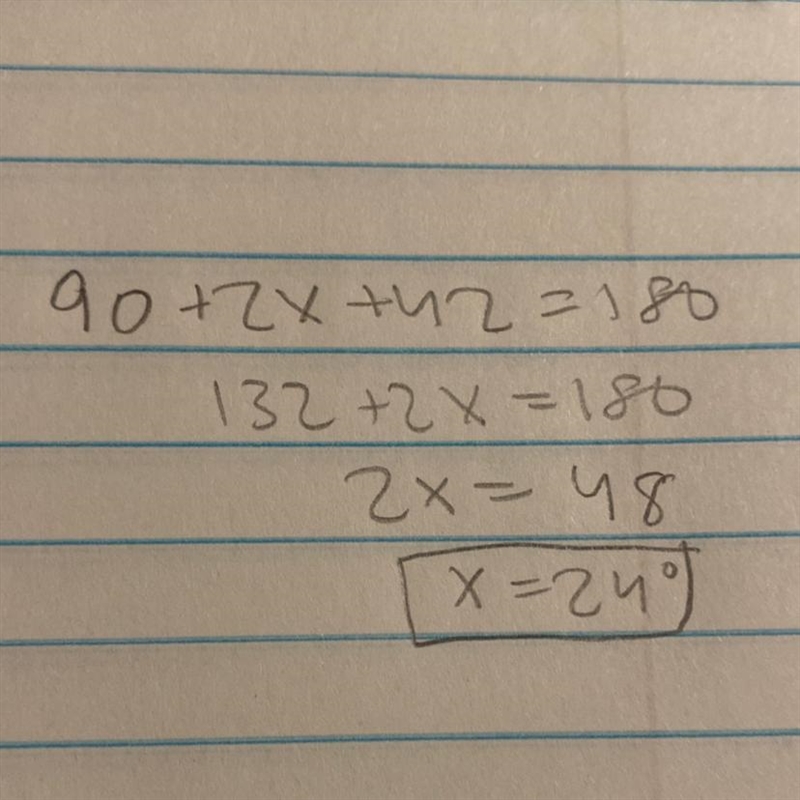 90 + 2x + 42 = 180
132 + 2x = 180
2x = 48
x = 24°